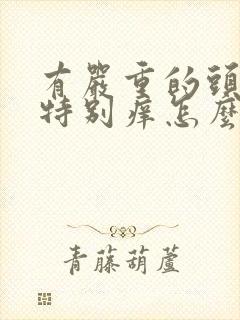 有嚴重的頭
特別痒怎麼
青藤葫蘆